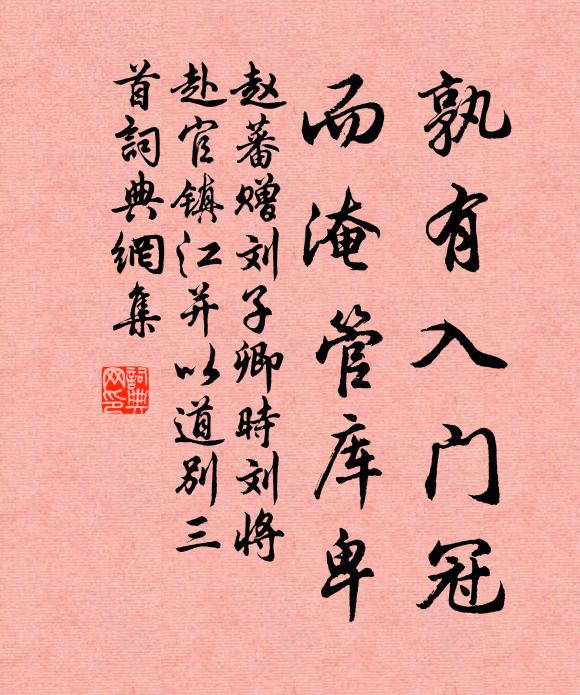 孰有入门冠
而淹管库卑
赵蕃赠刘子卿時刘将
赴官镇江并以道别三
首詞典網集
詞典
网印